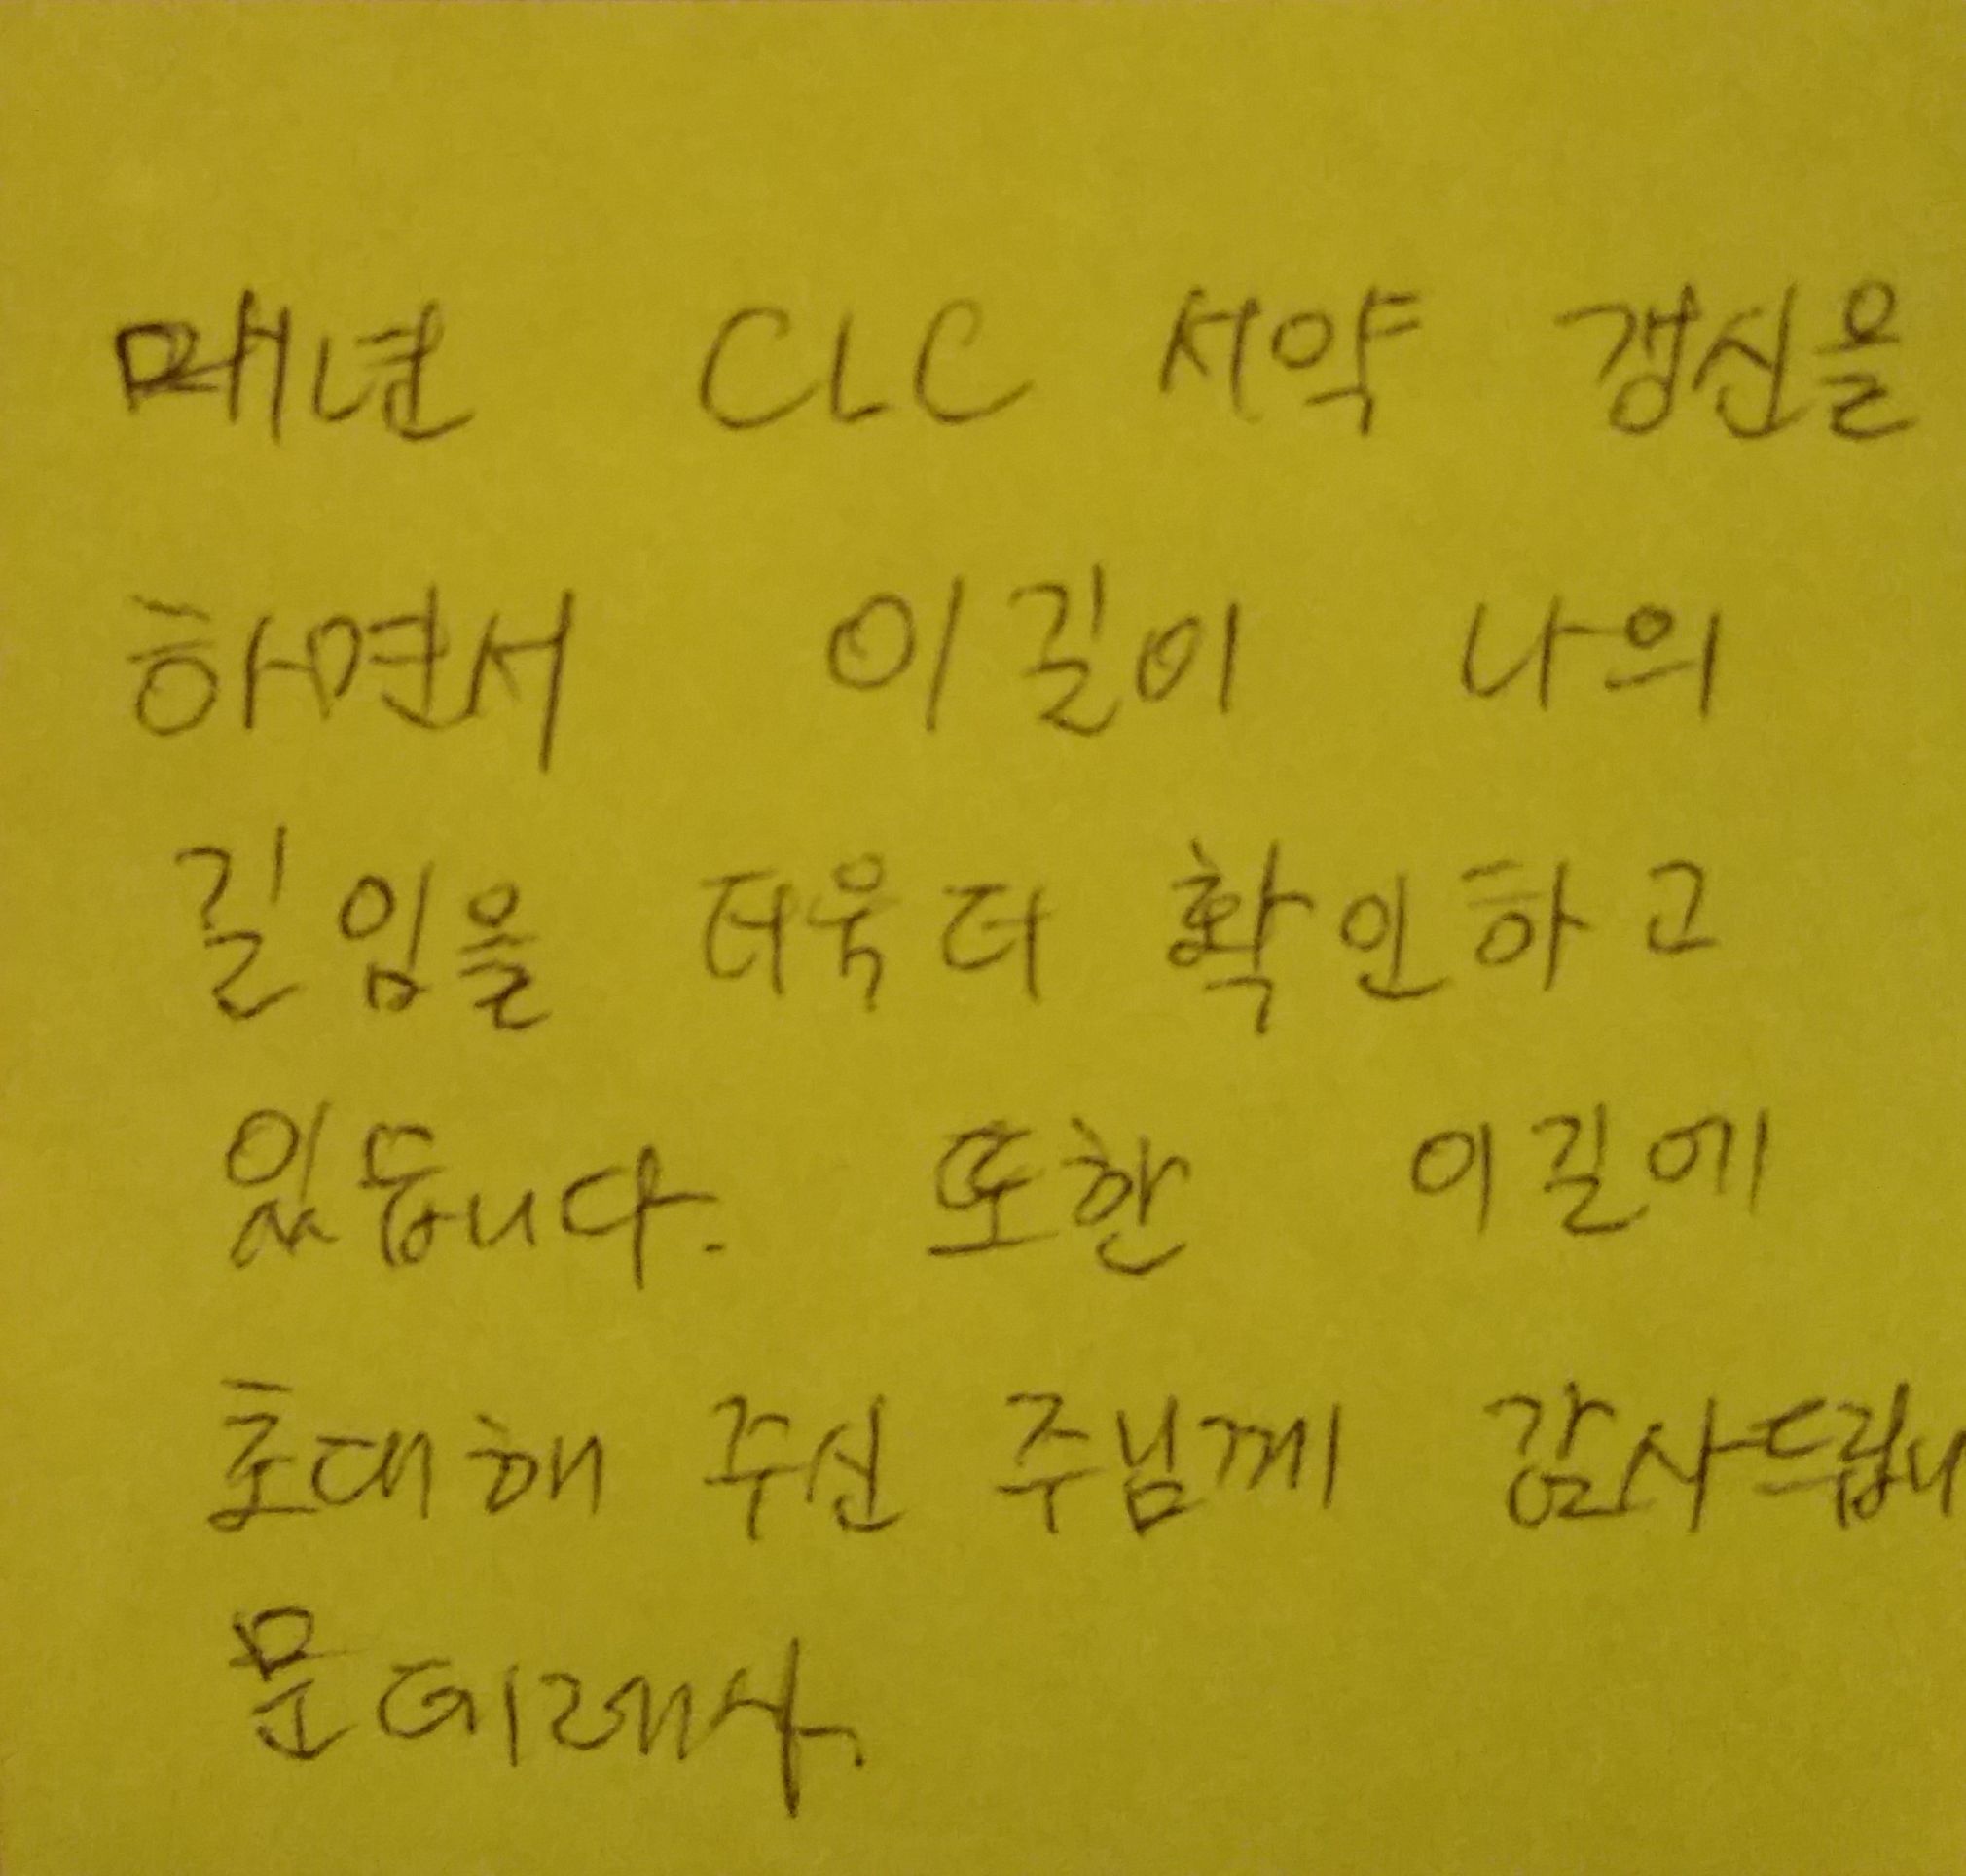 매년 CLC 서약 갱신을
하면서 이길이 나의
길임을 더욱더 확인하고
있읍니다. 또한 이길에
초대해 주신 주님께 감사드립니
문데레사.